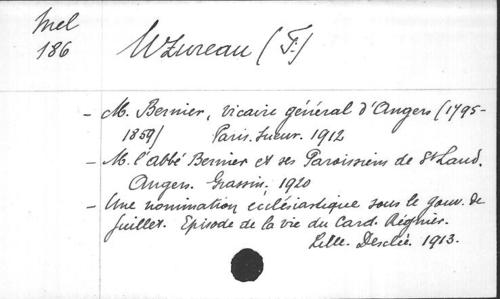 Mel
186
Uzureau (F.)
- M. Bernier, vicaire général d'Angers (1795-
1859) Paris. Sueur. 1912
- M. l'abbé Bernier et ses Paroissiens de St Laud.
Angers. Grassin. 1920
- Une nomination ecclésiastique sous le gouv. de
Juillet. Episode de la vie du Card. Régnier.
Lille. Desclée. 1913.